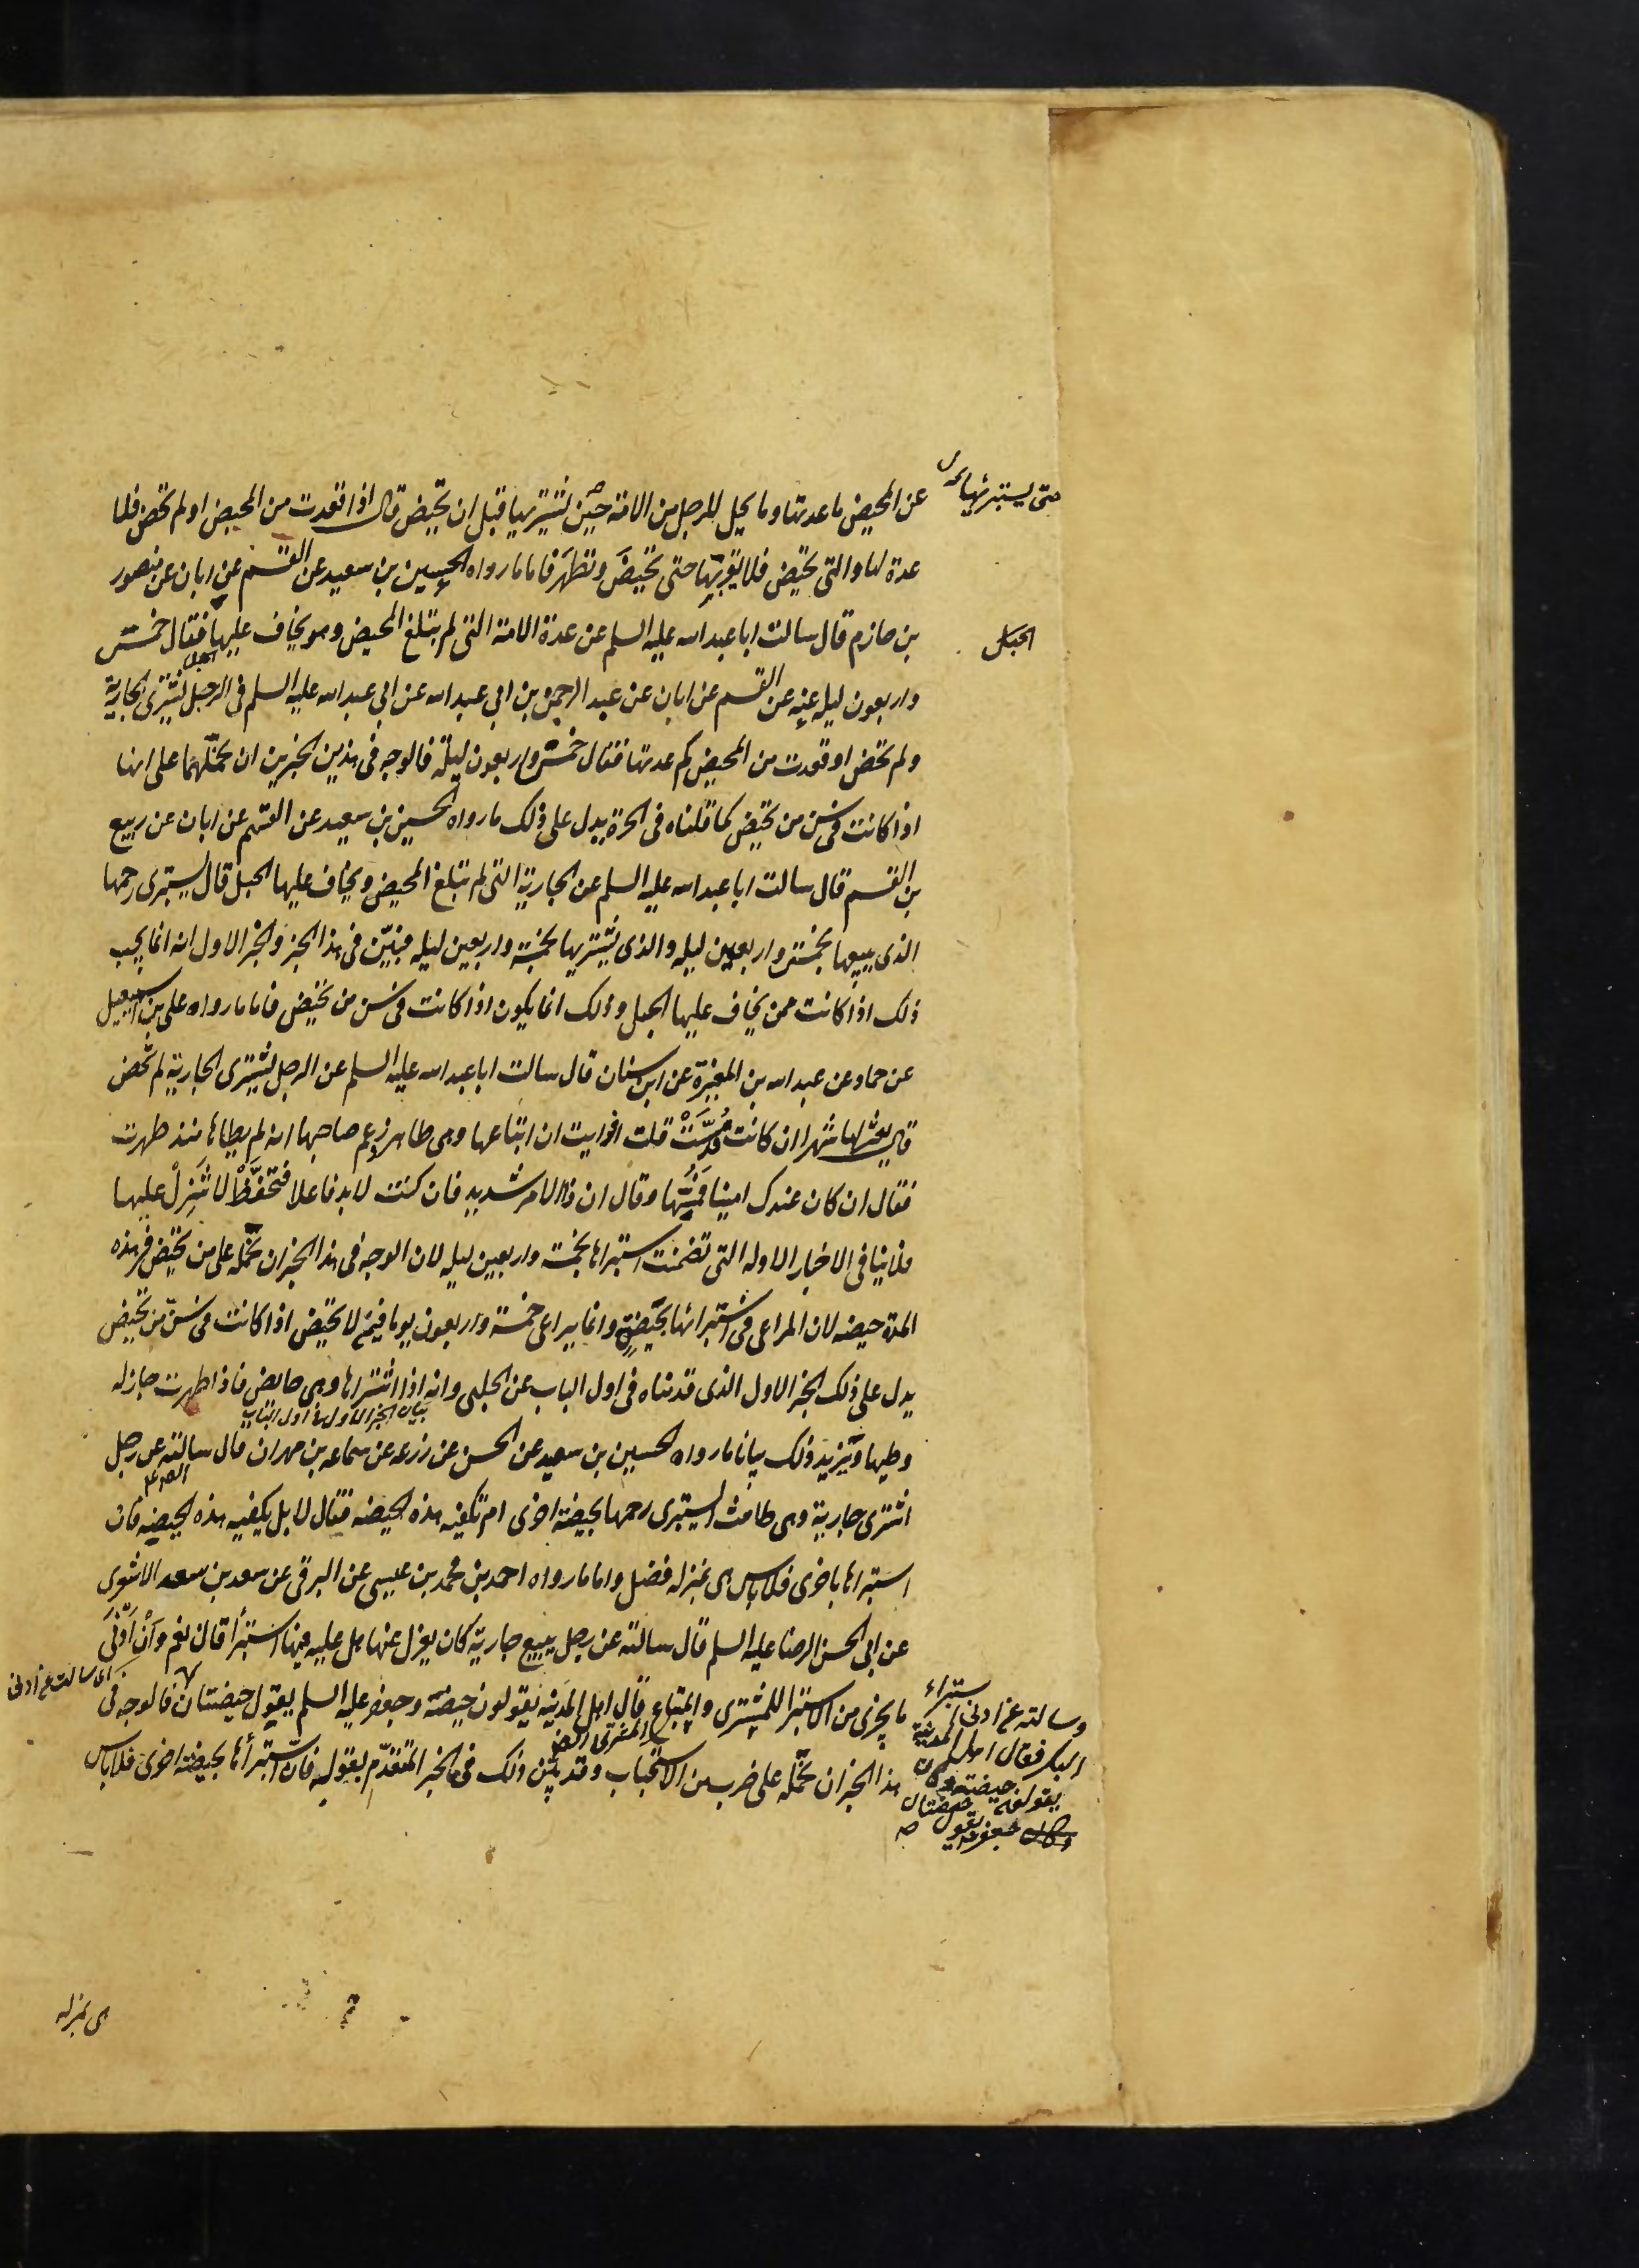 عن المحيض ما عدتها وما يحل للرجل من الامة حين يشتريها قبل ان تحيض قال اذا قعدت من المحيض او لم تحض فلا
حتى يستبرئها
عدة لها والتى تحيض فلا يقربها حتى تحيض وتطهر فاما ما رواه الحسين بن سعيد عن القسم عن ابان عن منصور
بن حازم قال سالت ابا عبد الله عليه السلم عن عدة الامة التى لم تبلغ المحيض وهو يخاف عليها فقال خمس
الحبل
واربعون ليله عنه عن القسم عن ابان عن عبد الرحمن بن ابى عبد الله عن ابى عبد الله عليه السلم فى الرجل يشترى الجارية
ولم تحض او قعدت من المحيض كم عدتها فقال خمس واربعون ليلة فالوجه فى هذين الخبرين ان نحملهما على انها
اذا كانت فى سن من تحيض كما قلناه فى الحرة يدل على ذلك ما رواه الحسين بن سعيد عن القسم عن ابان عن ربيع
بن القسم قال سالت ابا عبد الله عليه السلم عن الجارية التى لم تبلغ المحيض ويخاف عليها الحبل قال يستبرى رحمها
الذى يبيعها بخمس واربعين ليله والذى يشتريها بخمسة واربعين ليله فبين فى هذا الخبر والخبر الاول انه انما يجب
ذلك اذا كانت ممن يخاف عليها الحبل وذلك انما يكون اذا كانت فى سن من تحيض فاما ما رواه على بن اسمعيل
عن حماد عن عبد الله بن المغيرة عن ابن سنان قال سالت ابا عبد الله عليه السلم عن الرجل يشترى الجارية لم تحض
قال يعتزلها شهرا ان كانت قد مست قلت افرايت ان ابتاعها وهى طاهر وزعم صاحبها انه لم يطاها منذ طهرت
فقال ان كان عندك امينا فمسها وقال ان ذا الامر شديد فان كنت لابد فاعلا فتحفظ لا تنزل عليها
فلا ينافى الاخبار الاوله التى تضمنت استبراها بخمسة واربعين ليله لان الوجه فى هذا الخبر ان نحمله على من تحيض فى هذه
المدة حيضه لان المراعى فى استبرائها بحيضة وانما يراعى خمسة واربعون يوما فيمن لا تحيض اذا كانت فى سن من تحيض
يدل على ذلك الخبر الاول الذى قدمناه فى اول الباب عن الحلبى وانه اذا اشتراها وهى حايض فاذا طهرت جاز له
وطيها ويزيد ذلك بيانا ما رواه الحسين بن سعيد عن الحسن عن زرعه عن سماعه بن مهران قال سالته عن رجل
اشترى جارية وهى طامث ايستبرى رحمها بحيضة اخرى ام تكفيه هذه الحيضه فقال لا بل يكفيه هذه الحيضه فان
استبراها باخرى فلا باس هى بمنزله فضل واما ما رواه احمد بن محمد بن عيسى عن البرقى عن سعد بن سعد الاشعرى
عن ابى الحسن الرضا عليه السلم قال سالته عن رجل يبيع جارية كان يعزل عنها هل عليه فيها استبرأ قال نعم وان ادنى
ما يجزى من الاستبرا للمشترى والمبتاع قال اهل المدينه يقولون حيضة وجعفر عليه السلم يقول حيضتان فالوجه فى
وسالته عن ادنى استبراء
البكر فقال اهل المدينة
يقولون حيضة
جعفر يقول حيضتان
هذا الخبر ان نحمله على ضرب من الاستحباب وقد بين ذلك فى الخبر المتقدم بقوله فان استبرأها بحيضة اخرى فلا باس
هى بمنزله